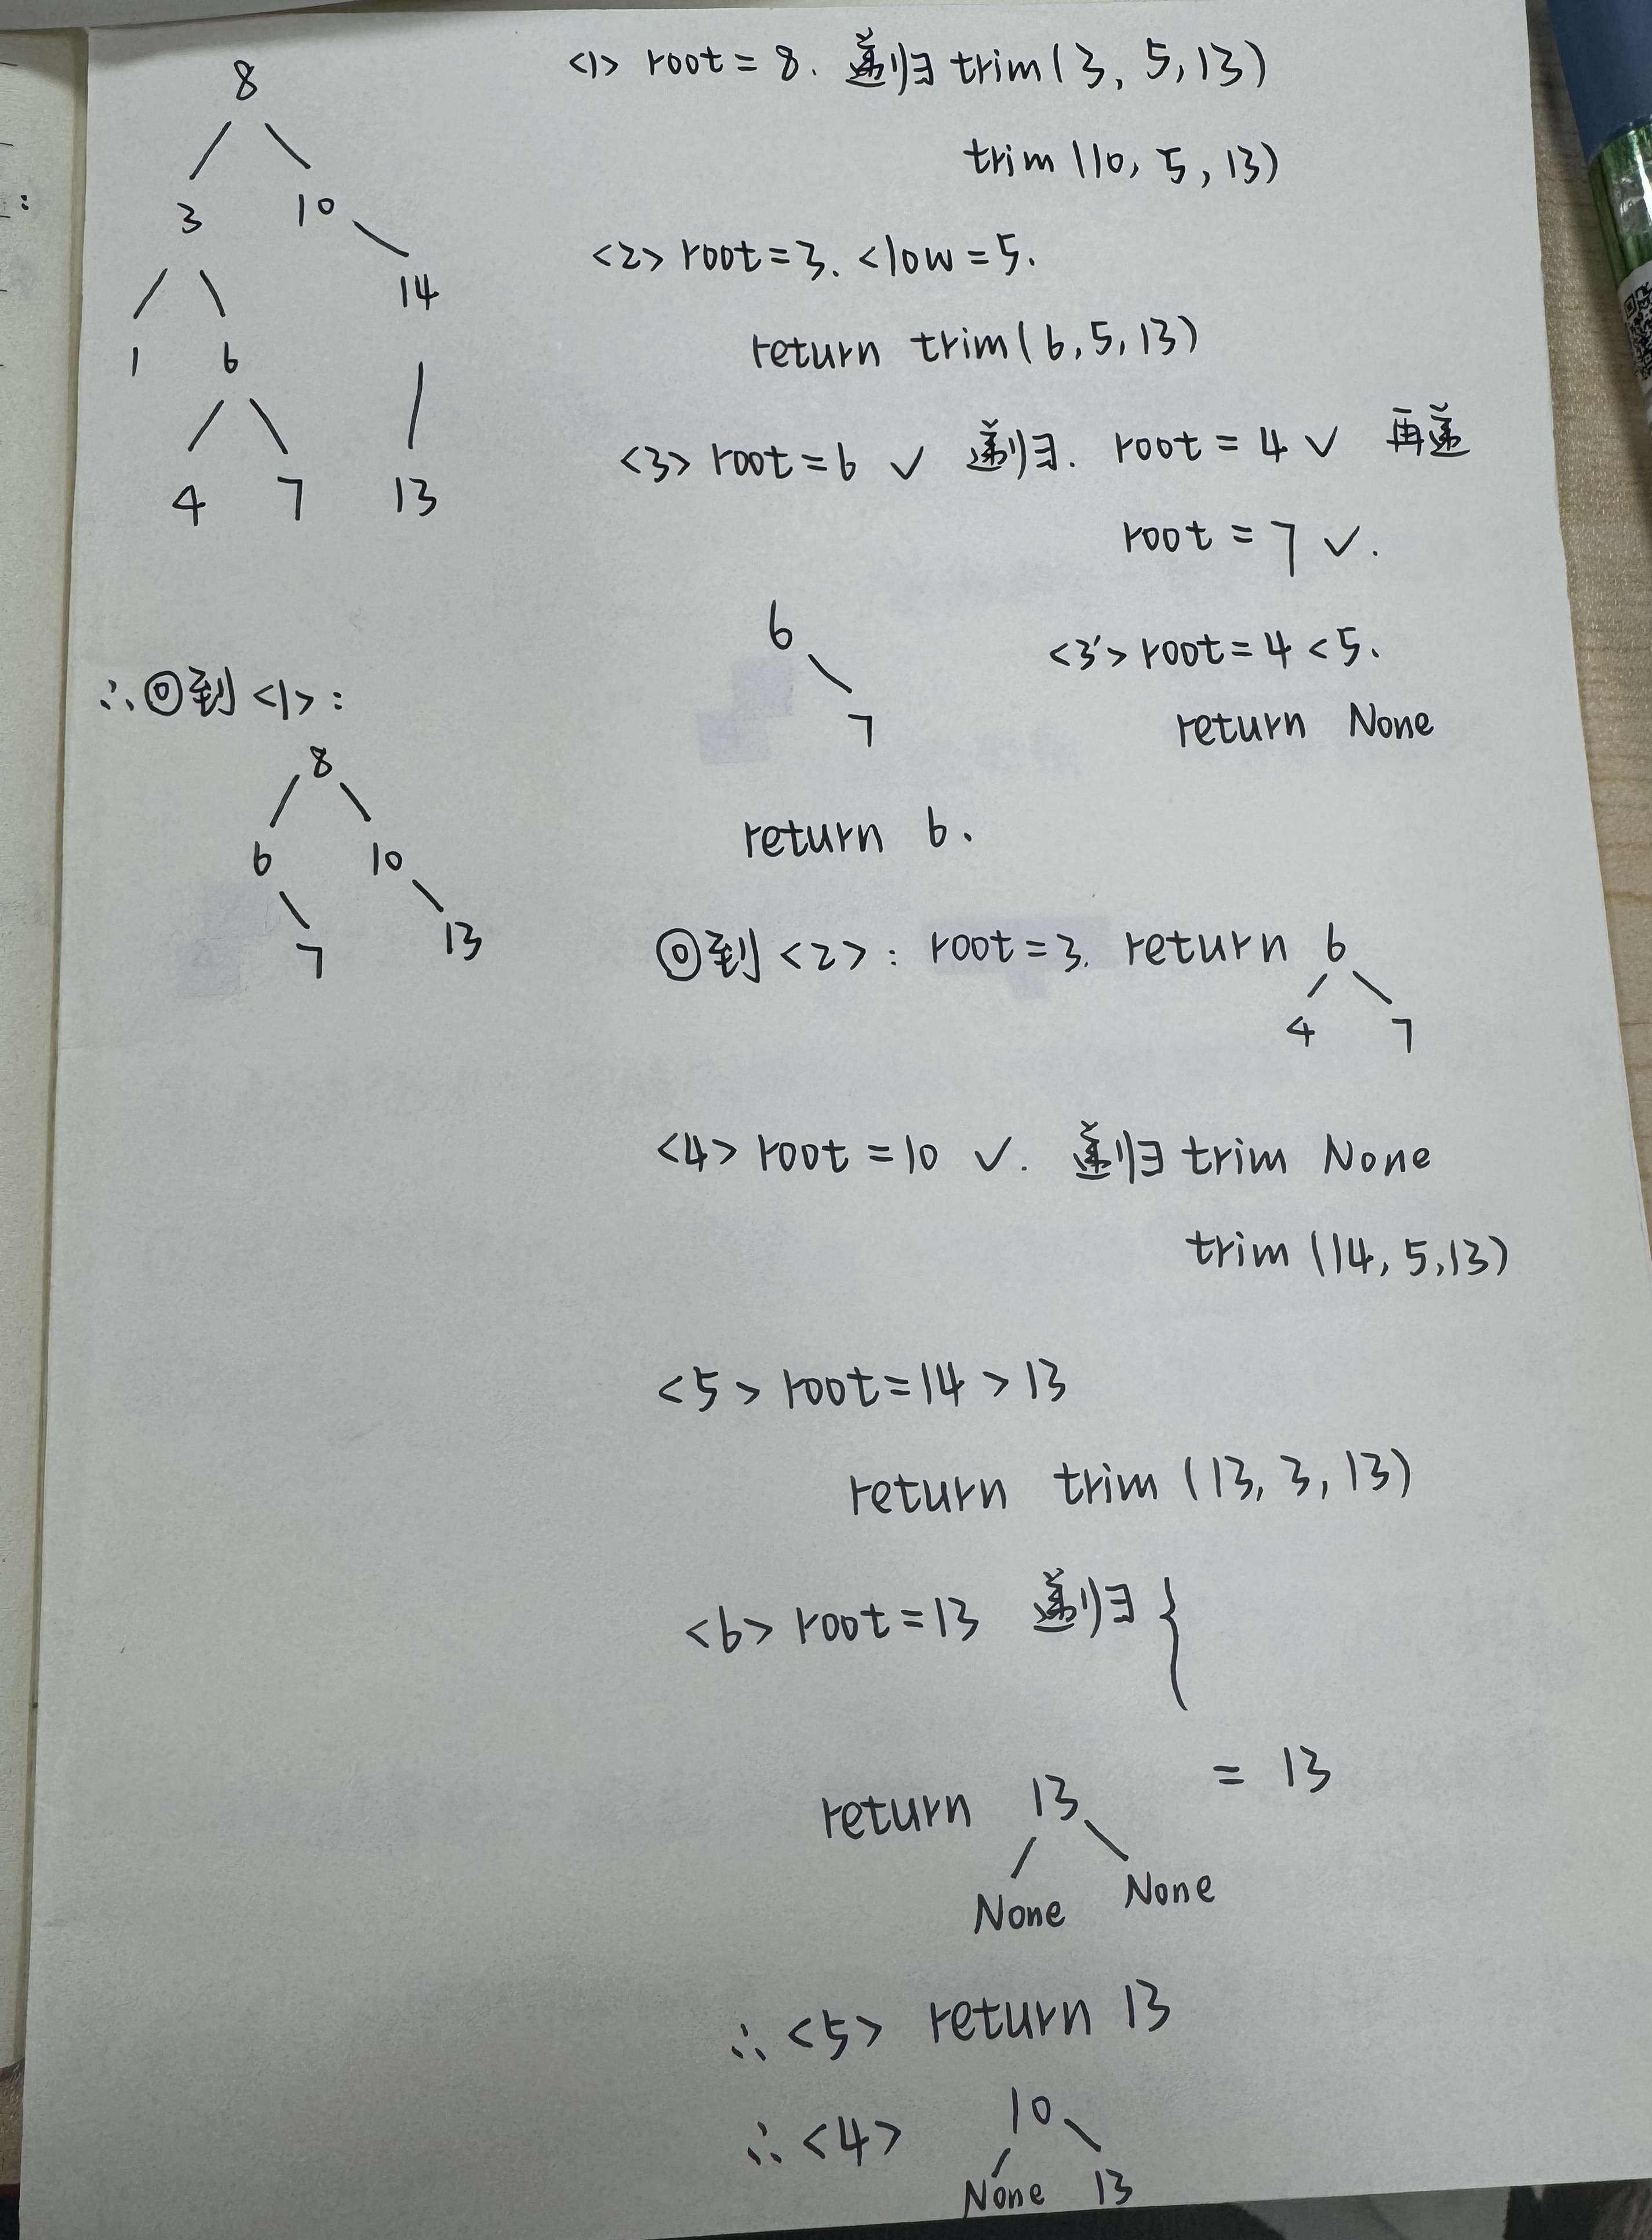 8
3 10
14
1 6
4 7 13
<1> root = 8. 递归 trim(3, 5, 13)
trim(10, 5, 13)
<2> root = 3. < low = 5.
return trim(6, 5, 13)
<3> root = 6 ✓ 递归. root = 4 ✓ 再递
root = 7 ✓.
6
7
<3'> root = 4 < 5.
return None
return 6.
回到 <2>: root = 3. return 6
4 7
<4> root = 10 ✓. 递归 trim None
trim (14, 5, 13)
<5> root = 14 > 13
return trim (13, 3, 13)
<6> root = 13 递归 {
return 13 = 13
None None
∴ <5> return 13
∴ <4> 10
None 13
∴ 回到 <1>:
8
6 10
7 13